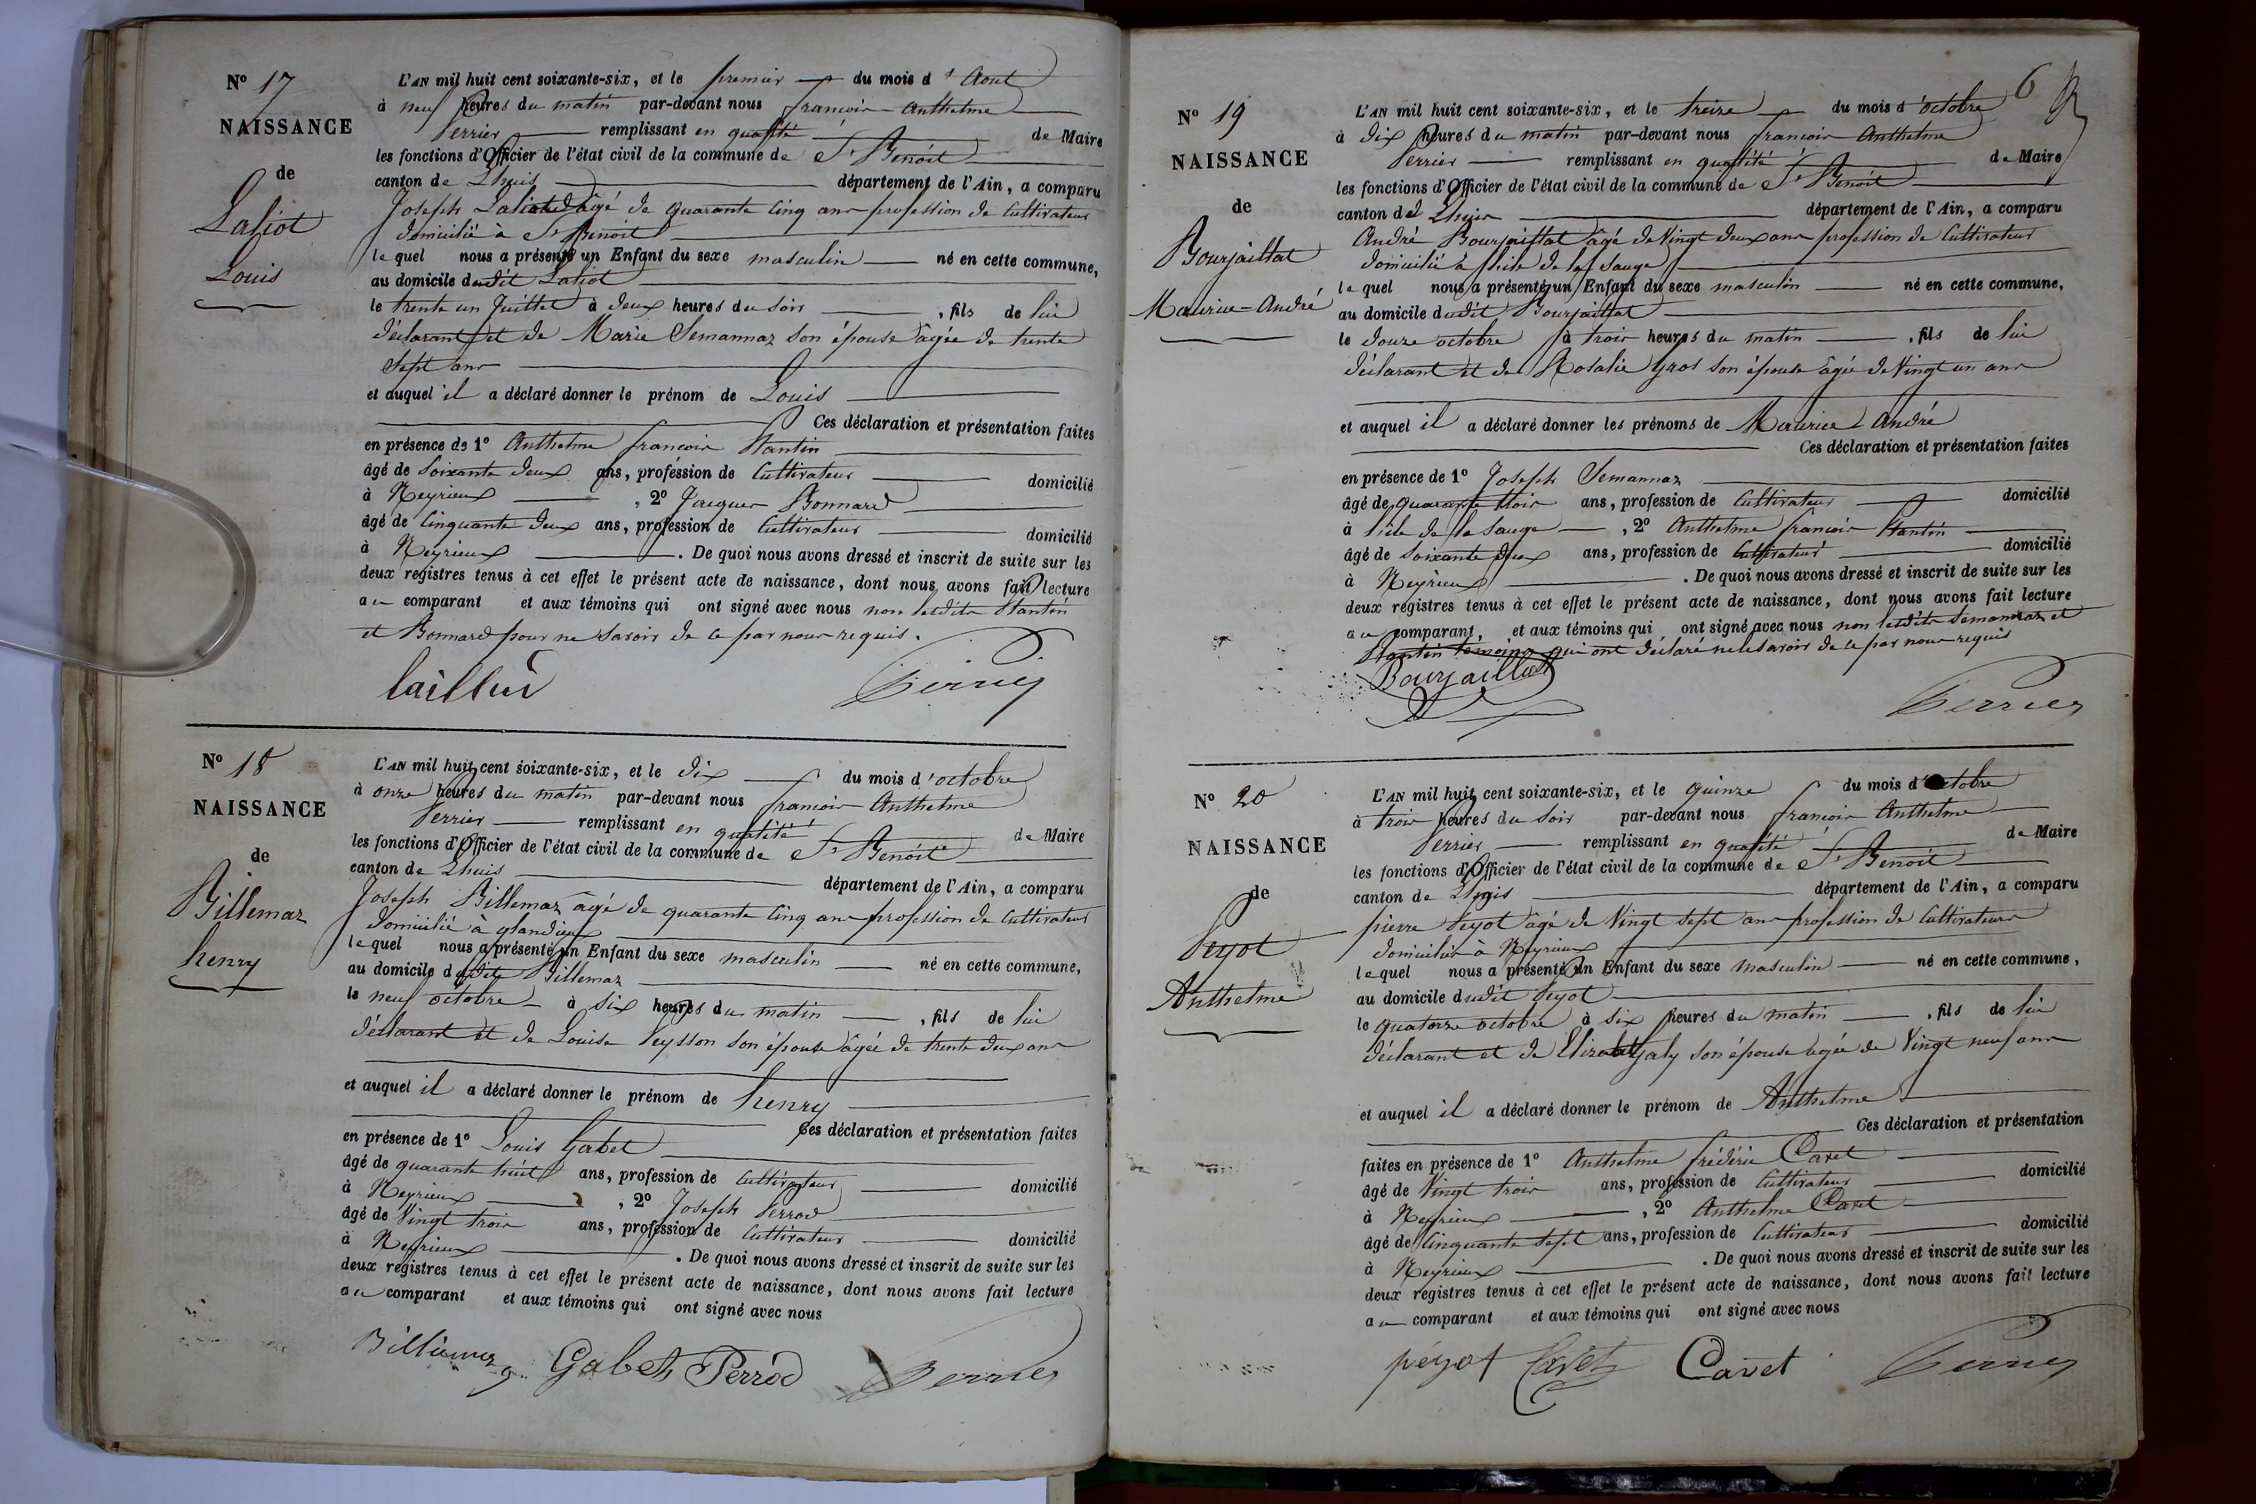 N° 17
NAISSANCE
de
Laliot
Louis
L'AN mil huit cent soixante-six, et le premier du mois d'Aout
à neuf heures du matin par-devant nous françois Anthelme
Perrier remplissant en qualité de Maire
les fonctions d'Officier de l'état civil de la commune de St Benoit
canton de Lhuis département de l'Ain, a comparu
Joseph Laliot âgé de quarante cinq ans profession de Cultivateur
domicilié à St Benoit
lequel nous a présenté un Enfant du sexe masculin né en cette commune,
au domicile dudit Laliot
le trente un Juillet à deux heures du soir, fils de lui
déclarant et de Marie Semannaz son épouse âgée de trente
sept ans
et auquel il a déclaré donner le prénom de Louis
Ces déclaration et présentation faites
en présence de 1° Anthelme françois Plantin
âgé de Soixante deux ans, profession de Cultivateur domicilié
à Neyrieux, 2° Jacques Bonnard
âgé de Cinquante deux ans, profession de Cultivateur domicilié
à Neyrieux. De quoi nous avons dressé et inscrit de suite sur les
deux registres tenus à cet effet le présent acte de naissance, dont nous avons fait lecture
au comparant et aux témoins qui ont signé avec nous non lesdits Plantin
et Bonnard pour ne savoir de ce par nous requis.
Perrier
N° 18
NAISSANCE
de
Billemaz
henry
L'AN mil huit cent soixante-six, et le dix du mois d'octobre
à onze heures du matin par-devant nous françois Anthelme
Perrier remplissant en qualité de Maire
les fonctions d'Officier de l'état civil de la commune de St Benoit
canton de Lhuis département de l'Ain, a comparu
Joseph Billemaz âgé de quarante cinq ans profession de Cultivateur
domicilié à glandieux
lequel nous a présenté un Enfant du sexe masculin né en cette commune,
au domicile dudit Billemaz
le neuf octobre à six heures du matin, fils de lui
déclarant et de Louise Peysson son épouse âgée de trente deux ans
et auquel il a déclaré donner le prénom de henry
Ces déclaration et présentation faites
en présence de 1° Louis Gabet
âgé de quarante huit ans, profession de Cultivateur domicilié
à Neyrieux, 2° Joseph Perrod
âgé de Vingt trois ans, profession de Cultivateur domicilié
à Neyrieux. De quoi nous avons dressé et inscrit de suite sur les
deux registres tenus à cet effet le présent acte de naissance, dont nous avons fait lecture
au comparant et aux témoins qui ont signé avec nous
Gabet Perrod Perrier
6
N° 19
NAISSANCE
de
Bourjaillat
Maurice-André
L'AN mil huit cent soixante-six, et le treize du mois d'octobre
à dix heures du matin par-devant nous françois Anthelme
Perrier remplissant en qualité de Maire
les fonctions d'Officier de l'état civil de la commune de St Benoit
canton de Lhuis département de l'Ain, a comparu
André Bourjaillat âgé de Vingt deux ans profession de Cultivateur
domicilié à l'hile de la Sauge
lequel nous a présenté un Enfant du sexe masculin né en cette commune,
au domicile dudit Bourjaillat
le douze octobre à trois heures du matin, fils de lui
déclarant et de Rosalie Gros son épouse âgée de Vingt un ans
et auquel il a déclaré donner les prénoms de Maurice André
Ces déclaration et présentation faites
en présence de 1° Joseph Semannaz
âgé de quarante trois ans, profession de Cultivateur domicilié
à l'ile de la Sauge, 2° Anthelme françois Plantin
âgé de Soixante deux ans, profession de Cultivateur domicilié
à Neyrieux. De quoi nous avons dressé et inscrit de suite sur les
deux registres tenus à cet effet le présent acte de naissance, dont nous avons fait lecture
au comparant, et aux témoins qui ont signé avec nous non lesdits Semannaz et
Plantin témoins qui ont déclaré ne le savoir de ce par nous requis
Bourjaillat
Perrier
N° 20
NAISSANCE
de
Peyot
Anthelme
L'AN mil huit cent soixante-six, et le quinze du mois d'octobre
à trois heures du soir par-devant nous françois Anthelme
Perrier remplissant en qualité de Maire
les fonctions d'Officier de l'état civil de la commune de St Benoit
canton de Lhuis département de l'Ain, a comparu
pierre Peyot âgé de Vingt sept ans profession de Cultivateur
domicilié à Neyrieux
lequel nous a présenté un Enfant du sexe masculin né en cette commune,
au domicile dudit Peyot
le quatorze octobre à six heures du matin, fils de lui
déclarant et de Galy son épouse âgée de Vingt neuf ans
et auquel il a déclaré donner le prénom de Anthelme
Ces déclaration et présentation
faites en présence de 1° Anthelme frédéric Cavet
âgé de Vingt trois ans, profession de Cultivateur domicilié
à Neyrieux, 2° Anthelme Cavet
âgé de Cinquante sept ans, profession de Cultivateur domicilié
à Neyrieux. De quoi nous avons dressé et inscrit de suite sur les
deux registres tenus à cet effet le présent acte de naissance, dont nous avons fait lecture
au comparant et aux témoins qui ont signé avec nous
péyot Cavet Cavet Perrier